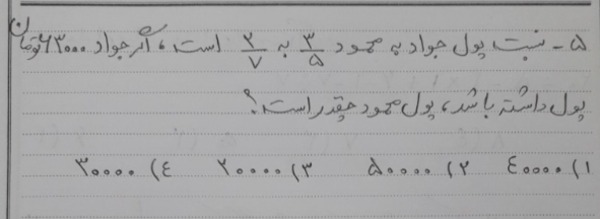 ۵- نسبت پول جواد به محمود ۳/۵ به ۲/۷ است، اگر جواد ۶۳۰۰۰ تومان
پول داشته باشد، پول محمود چقدر است؟
۱) ۴۰۰۰۰ ۲) ۵۰۰۰۰ ۳) ۲۰۰۰۰ ۴) ۳۰۰۰۰